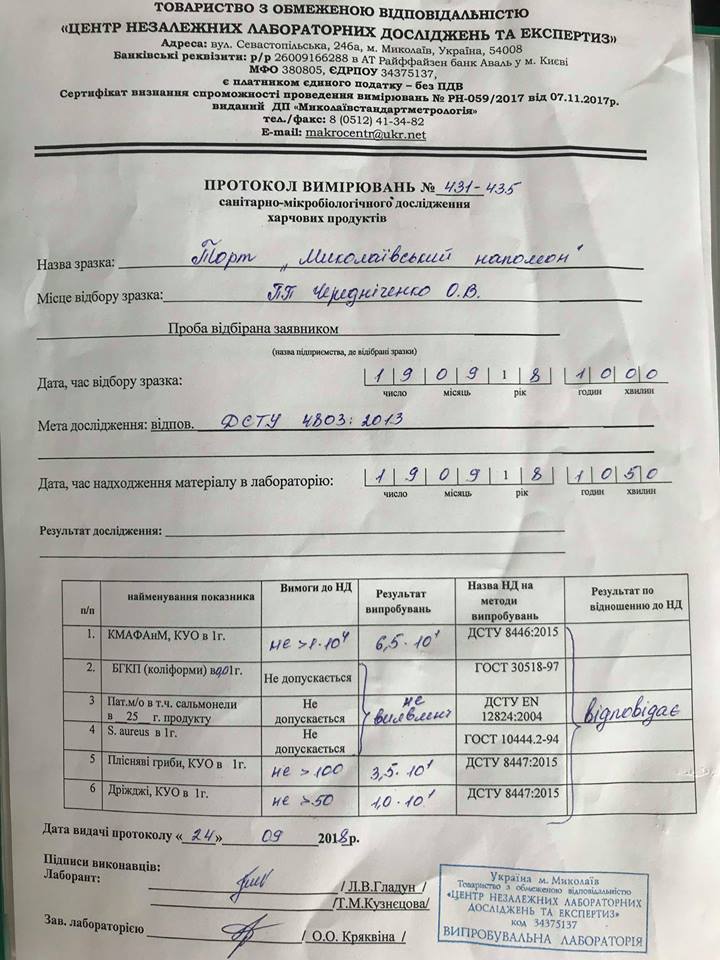 ТОВАРИСТВО З ОБМЕЖЕНОЮ ВІДПОВІДАЛЬНІСТЮ
«ЦЕНТР НЕЗАЛЕЖНИХ ЛАБОРАТОРНИХ ДОСЛІДЖЕНЬ ТА ЕКСПЕРТИЗ»
Адреса: вул. Севастопільська, 24ба, м. Миколаїв, Україна, 54008
Банківські реквізити: р/р 26009166288 в АТ Райффайзен банк Аваль у м. Києві
МФО 380805, ЄДРПОУ 34375137,
є платником єдиного податку – без ПДВ
Сертифікат визнання спроможності проведення вимірювань № РН-059/2017 від 07.11.2017р.
виданий ДП «Миколаївстандартметрологія»
тел./факс: 8 (0512) 41-34-82
E-mail: makrocentr@ukr.net
ПРОТОКОЛ ВИМІРЮВАНЬ № 431-435
санітарно-мікробіологічного дослідження
харчових продуктів
Назва зразка: Торт „Миколаївський наполеон"
Місце відбору зразка: ПП Чередніченко О.В.
Проба відбірана заявником
(назва підприємства, де відібрані зразки)
Дата, час відбору зразка: 1 9 0 9 1 8 1 0 0 0
число місяць рік годин хвилин
Мета дослідження: відпов. ДСТУ 4803:2013
Дата, час надходження матеріалу в лабораторію: 1 9 0 9 1 8 1 0 5 0
число місяць рік годин хвилин
Результат дослідження:
п/п найменування показника Вимоги до НД Результат випробувань Назва НД на методи випробувань Результат по відношенню до НД
1. КМАФАнМ, КУО в 1г. не >1·10⁴ 6,5·10¹ ДСТУ 8446:2015
2. БГКП (коліформи) в 0,01г. Не допускається ГОСТ 30518-97
3 Пат.м/о в т.ч. сальмонели в 25 г. продукту Не допускається не виявлені ДСТУ EN 12824:2004 відповідає
4 S. aureus в 1г. Не допускається ГОСТ 10444.2-94
5 Плісняві гриби, КУО в 1г. не >100 3,5·10¹ ДСТУ 8447:2015
6 Дріжджі, КУО в 1г. не >50 1,0·10¹ ДСТУ 8447:2015
Дата видачі протоколу «24» 09 2018р.
Підписи виконавців:
Лаборант: / Л.В.Гладун /
/Т.М.Кузнєцова/
Зав. лабораторією / О.О. Кряквіна /
Україна м. Миколаїв
Товариство з обмеженою відповідальністю
«ЦЕНТР НЕЗАЛЕЖНИХ ЛАБОРАТОРНИХ
ДОСЛІДЖЕНЬ ТА ЕКСПЕРТИЗ»
код 34375137
ВИПРОБУВАЛЬНА ЛАБОРАТОРІЯ